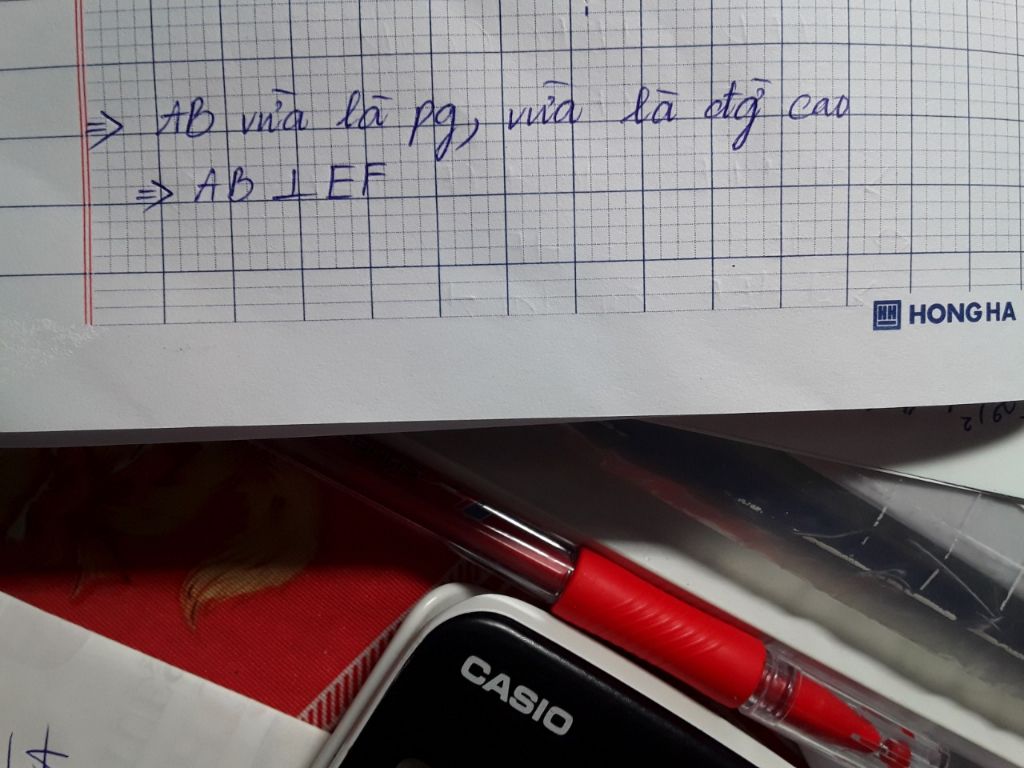 => AB vừa là pg, vừa là đg̉ cao
=> AB ⊥ EF
HONG HA
CASIO